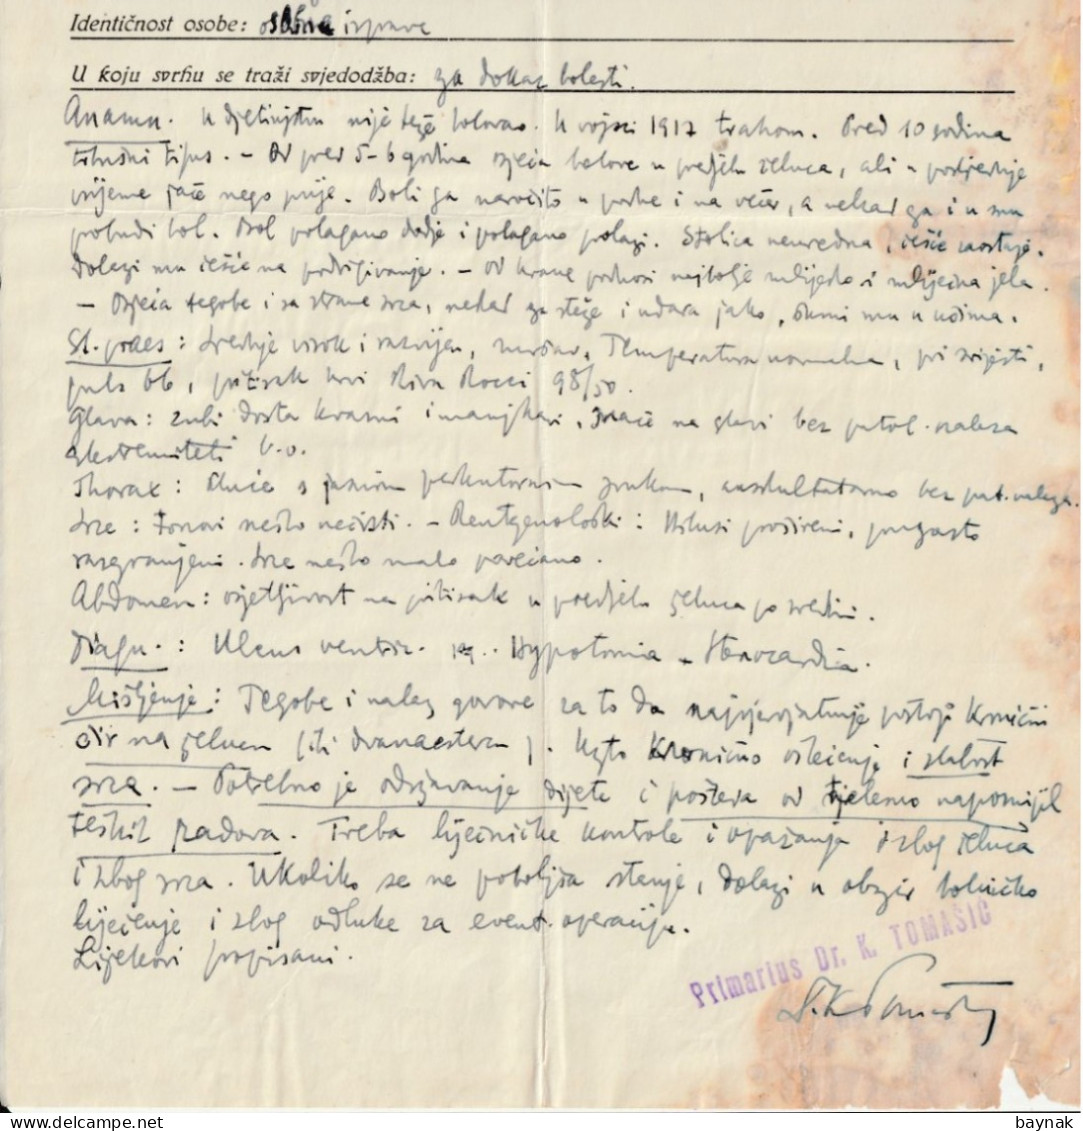 Identičnost osobe: osobna isprave
U koju svrhu se traži svjedodžba: za dokaz bolesti.
Anamn. U djetinjstvu nije teže bolovao. U vojsci 1917 trahom. Pred 10 godina
trbušni tifus. - Od pred 5-6 godina osjeća bolove u predjelu želuca, ali u posljednje
vrijeme jače nego prije. Boli ga naročito u podne i na večer, a nekad ga i u snu
probudi bol. Bol polagano dodje i polagano prolazi. Stolica neuredna, češće zaostaje.
Dolazi mu češće na podrigivanje. - Od hrane podnosi najbolje mlijeko i mliječna jela.
- Osjeća tegobe i sa strane srca, nekad ga steže i udara jako, šumi mu u ušima.
St. praes: Srednje visok i razvijen, mršav. Temperatura normalna, pri svijesti,
puls 66, pritisak krvi Riva Rocci 98/50.
Glava: zubi dosta kvarni i manjkavi, inače na glavi bez patol. nalaza
Ekstremiteti b.o.
Thorax: Pluća s jasnim perkutornim zvukom, auskultatorno bez pat. nalaza.
Srce: Tonovi nešto nečisti. - Rentgenološki: Hilusi prošireni, prugasto
razgranjeni. Srce nešto malo povećano.
Abdomen: osjetljivost na pritisak u predjelu želuca po sredini.
Diagn.: Ulcus ventric. Hypotonia - Stenocardia.
Mišljenje: Tegobe i nalaz govore za to da najvjerojatnije postoji kronični
čir na želucu (ili dvanaestercu). Usto kronično oštećenje i slabost
srca. - Potrebno je održavanje dijete i pošteda od tjelesno napornijih
teških radova. Treba liječničke kontrole i opažanja i zbog želuca
i zbog srca. Ukoliko se ne poboljša stanje, dolazi u obzir bolničko
liječenje i zbog odluke za event. operaciju.
Lijekovi propisani.
Primarius Dr. K. TOMAŠIĆ
baynak